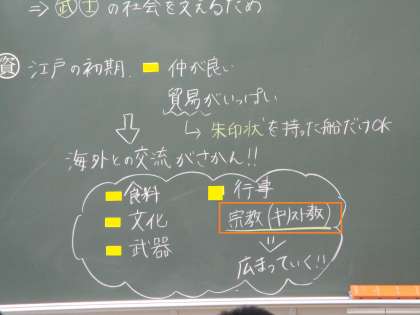 ⇒ 武士の社会を支えるため
資 江戸の初期、仲が良い
貿易がいっぱい
↳ 朱印状を持った船だけOK
海外との交流がさかん!!
食料
文化
武器
行事
宗教(キリスト教)
広まっていく!!